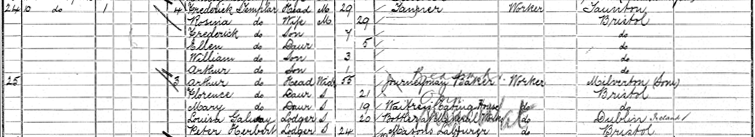 24 0 do 1 4 Frederick Templar Head M 29 Tanner Worker Taunton
Rosina do Wife M 29 Bristol
Frederick do Son 7 do
Ellen do Daur 5 do
William do Son 3 do
Arthur do Son 1 do
25 3 Arthur do Head Widr 55 Journeyman Baker Worker Milverton (Som)
Florence do Daur S 21 Bristol
Mary do Daur S 19 Waitress (Eating House) do do
Louisa Lodger S 20 do Dublin Ireland
Peter Herbert Lodger S 24 Masons Labourer do Bristol